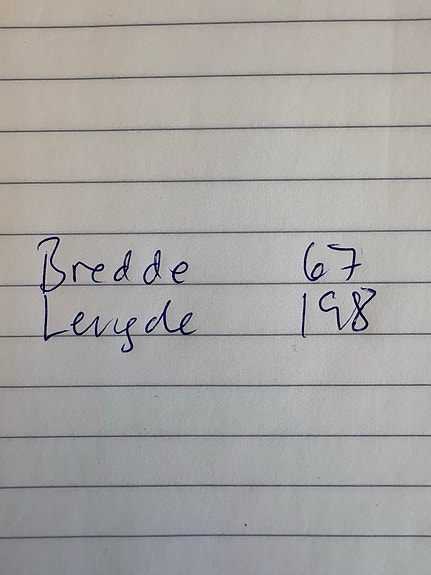 Bredde 67
Lengde 198